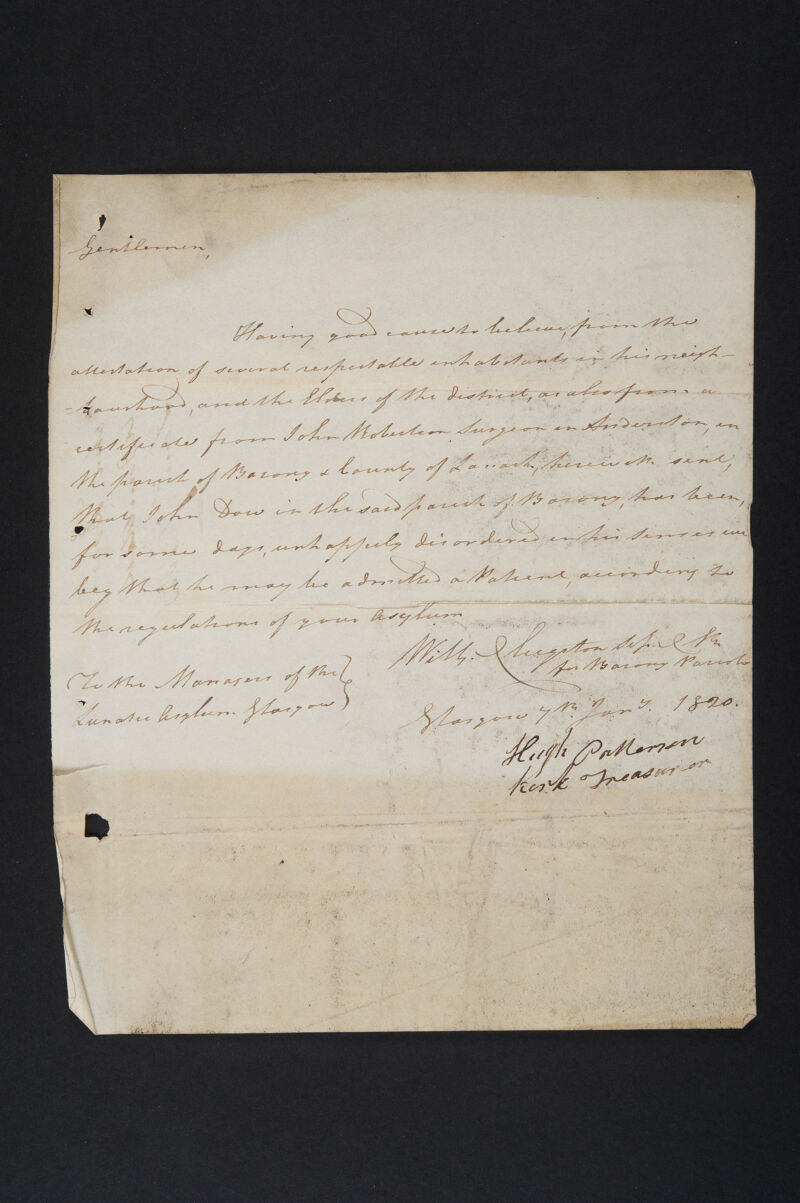 Gentlemen,
Having good cause to believe, from the
attestation of several respectable inhabitants in his neigh-
=bourhood, and the Elders of the district, as also from a
certificate from John Robertson Surgeon in Anderston, in
the parish of Barony & County of Lanark, herewith sent,
that John Dow in the said parish of Barony, has been,
for some days, unhappily disordered in his senses we
beg that he may be admitted a Patient, according to
the regulations of your Asylum
Willm. Clugston
for Barony Parish
To the Managers of the
Lunatic Asylum Glasgow
Glasgow 7th. Jany. 1820.
Hugh Patterson
Kirk Treasurer